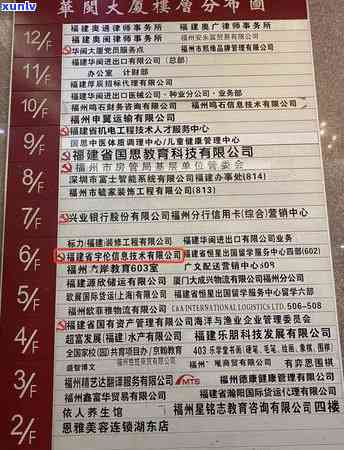 xunlv
www
華閩大厦樓層分布圖
12/F
福建奥通律师事务所 福建奥广律师事务所
福建奥闽律师事务所
华闽大厦党员服务点
11/F
福建华闽进出口有限公司
办公室 计财部
福建厚辰招标代理有限公司
10/F
福建华闽进出口医械公司·种业分公司·业务部
福州鸣石财务咨询有限公司 福州鸣石信息技术有限公司
福州申翼运输有限公司
9/F
福建省机电工程技术人才服务中心
国思中医体质调理中心/儿童健康管理中心
福建省国思教育科技有限公司
8/F
福州市房管局基层单位管委会
深圳市富士智能系统有限公司 福建办事处(814)
福州市毓家装饰工程有限公司(813)
7/F
兴业银行股份有限公司福州分行信用卡(综合)营销中心
6/F
标力(福建)装修工程有限公司 福建华闽进出口有限公司业务一
福建省宇伦信息技术有限公司 福建省恒星出国留学服务中心四部(602)
岸教育603室 广友配送营销中心
5/F
福建源欣储运有限公司 厦门大成兴物流有限公司福州分公司
欧展国际货运(上海)有限公司 福建省恒星出国留学服务中心学部六部
福州欧菲雅物流有限公司 L&A INTERNATIONAL LOGISTICS LTD. 506-508
4/F
福建省国有资产管理有限公司 海洋与渔业企业管理委员会
超富发展(福建)水产有限公司 福建乐朋科技发展有限公司
全国家校(园)共育项目办/京翰教育 403 乐学堂书画(硬笔、毛笔、绘画、象棋、围棋)
3/F
盛智博文 福州 唯商贸有限公司 有弈思围棋
福州精艺达翻译服务有限公司 MTS 福州德康健康管理有限公司
福州鑫富华贸易有限公司 福建省瀚阳国际货运代理有限公司
2/F
依人养生馆 福州星铭志教育咨询有限公司 四楼
恩雅美容连锁湖东店